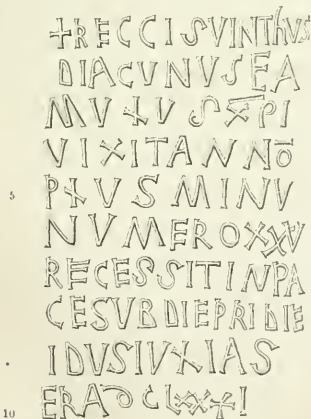 +RECCISVINThVS
DIACVNVSEA
MVLVSXP̅I
VIXITANNO̅
5 PLVSMINV
NVMEROXXV
RECESSITINPA
CESVBDIEPRIDIE
IDVSIVLIAS
10 ERA